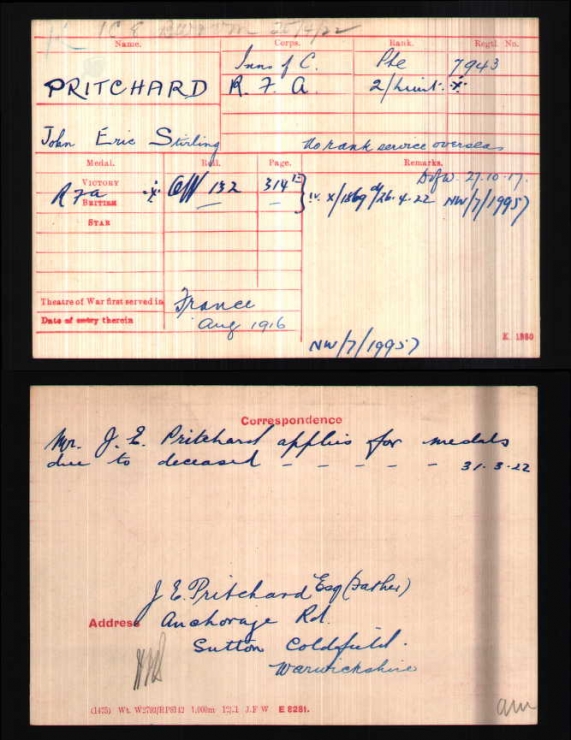 25/4/22
Name. Corps. Rank. Regtl. No.
PRITCHARD Inns of C. Pte 7943
R. F. A. 2/Lieut. ·x·
John Eric Stirling No rank service overseas
Medal. Roll. Page. Remarks.
VICTORY D of W. 27.10.17.
R F A ·x· OFF 132 314
BRITISH IV. X/1869 d/26.4.22 NW/7/19957
STAR
Theatre of War first served in France
Date of entry therein Aug 1916
NW/7/19957 K. 1380
Correspondence
Mr. J. E. Pritchard applies for medals
due to deceased - - - - - 31-3-22
J. E. Pritchard Esq (Father)
Address Anchorage Rd.
Sutton Coldfield.
Warwickshire
1,000m J.F W E 8281.